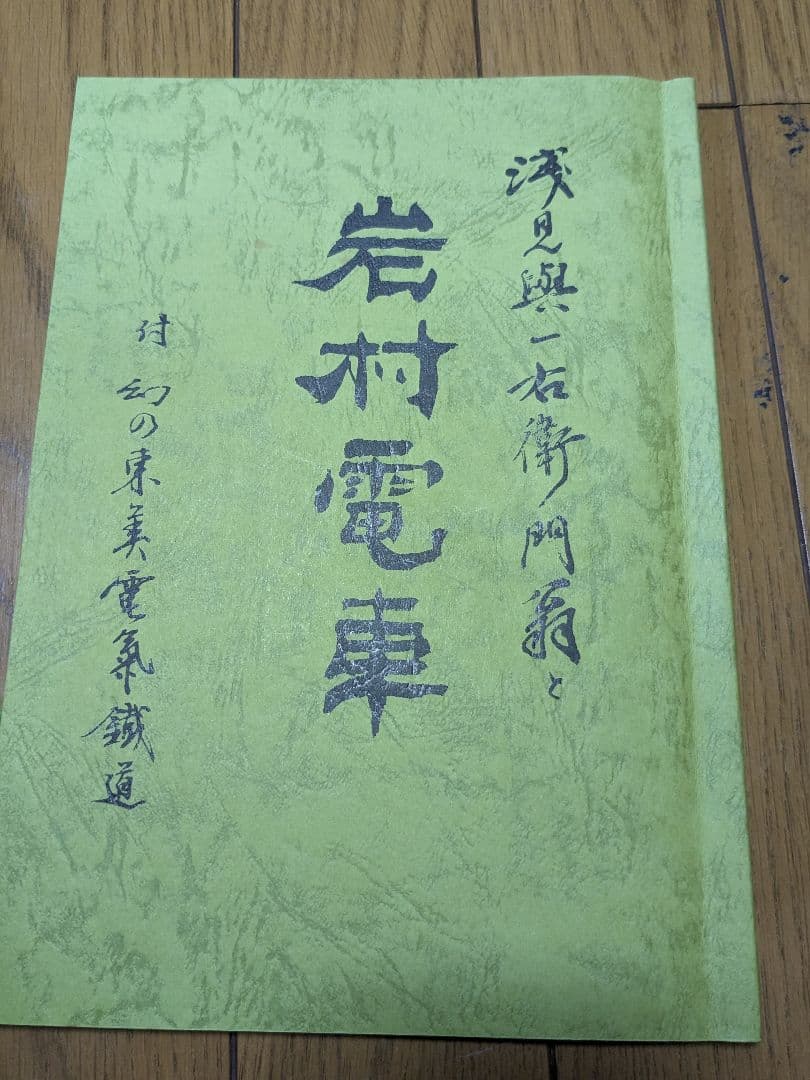 浅見與一右衛門翁と
岩村電車
付 幻の東美電氣鐵道